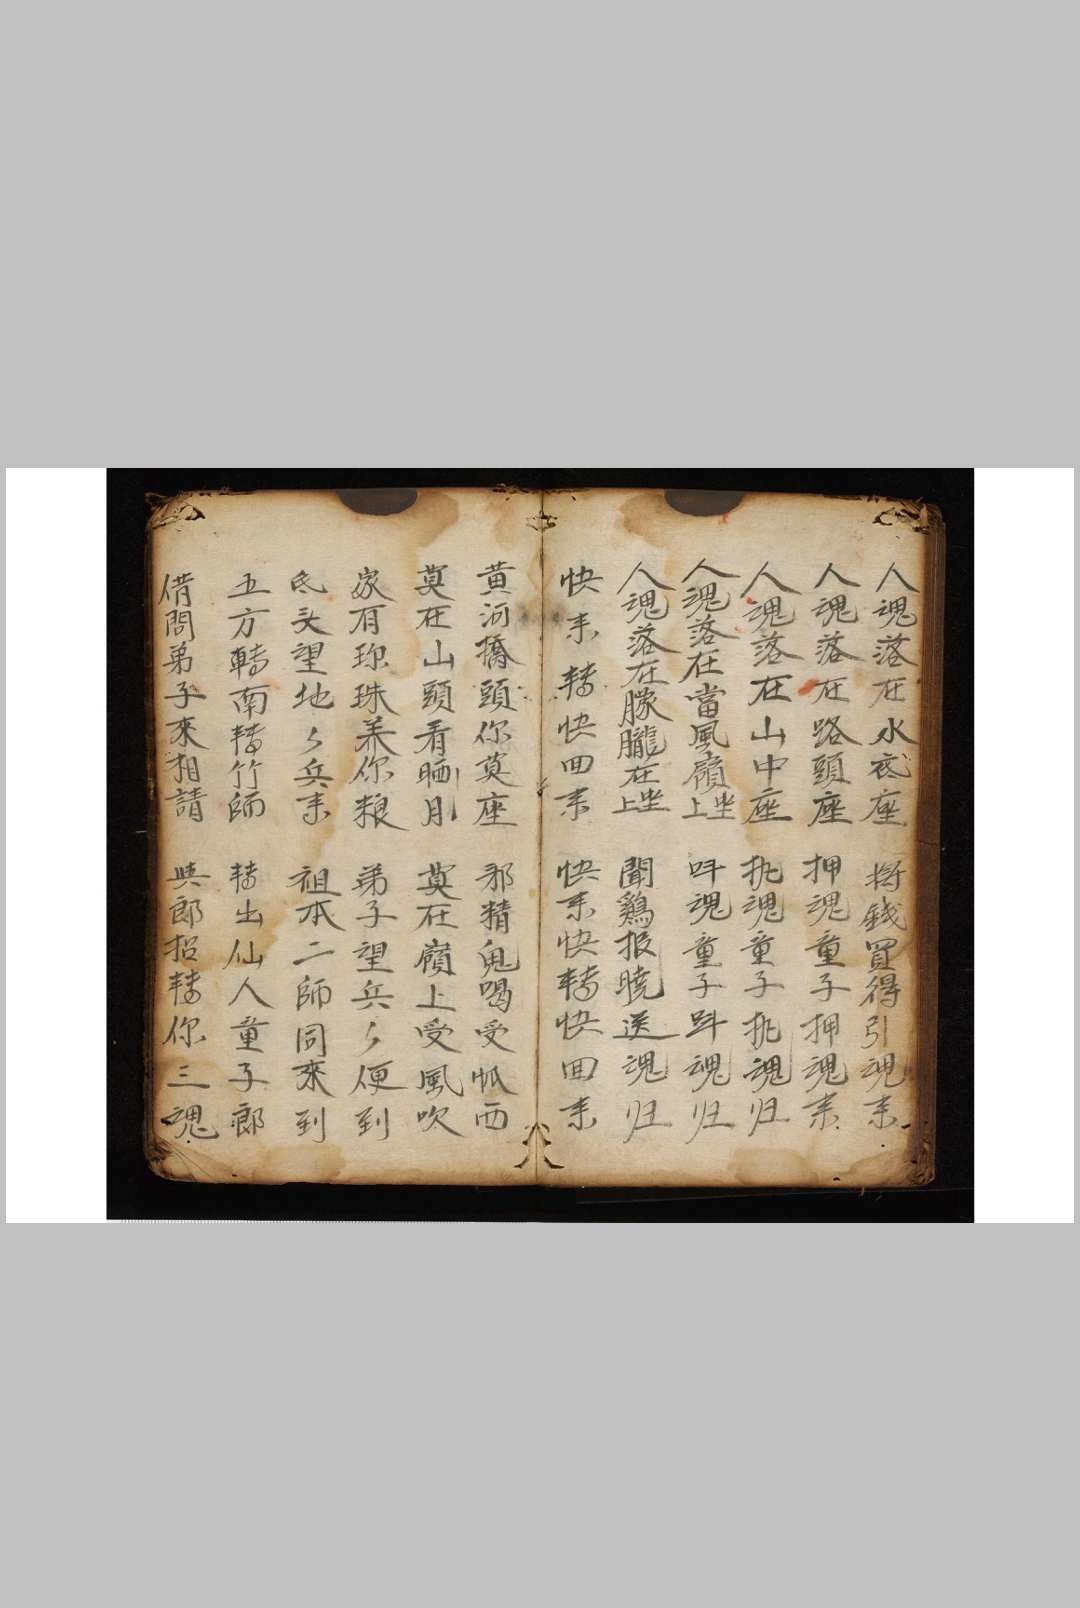 人魂落在水底座 将錢買得引魂来
人魂落在路頭座 押魂童子押魂来
人魂落在山中座 批魂童子批魂归
人魂落在當風嶺上坐 呌魂童子呌魂归
人魂落在朦朧在上坐 聞鷄报曉送魂归
快来轉快回来 快来快轉快回来
黄河橋頭你莫座 邪精鬼喝受 西
莫在山頭看晒月 莫在嶺上受風吹
家有珎珠养你粮 弟子望兵〻便到
氐头望地〻兵来 祖本二師同來到
五方轉南轉竹師 轉出仙人童子郎
借問弟子來相請 與郎招轉你三魂